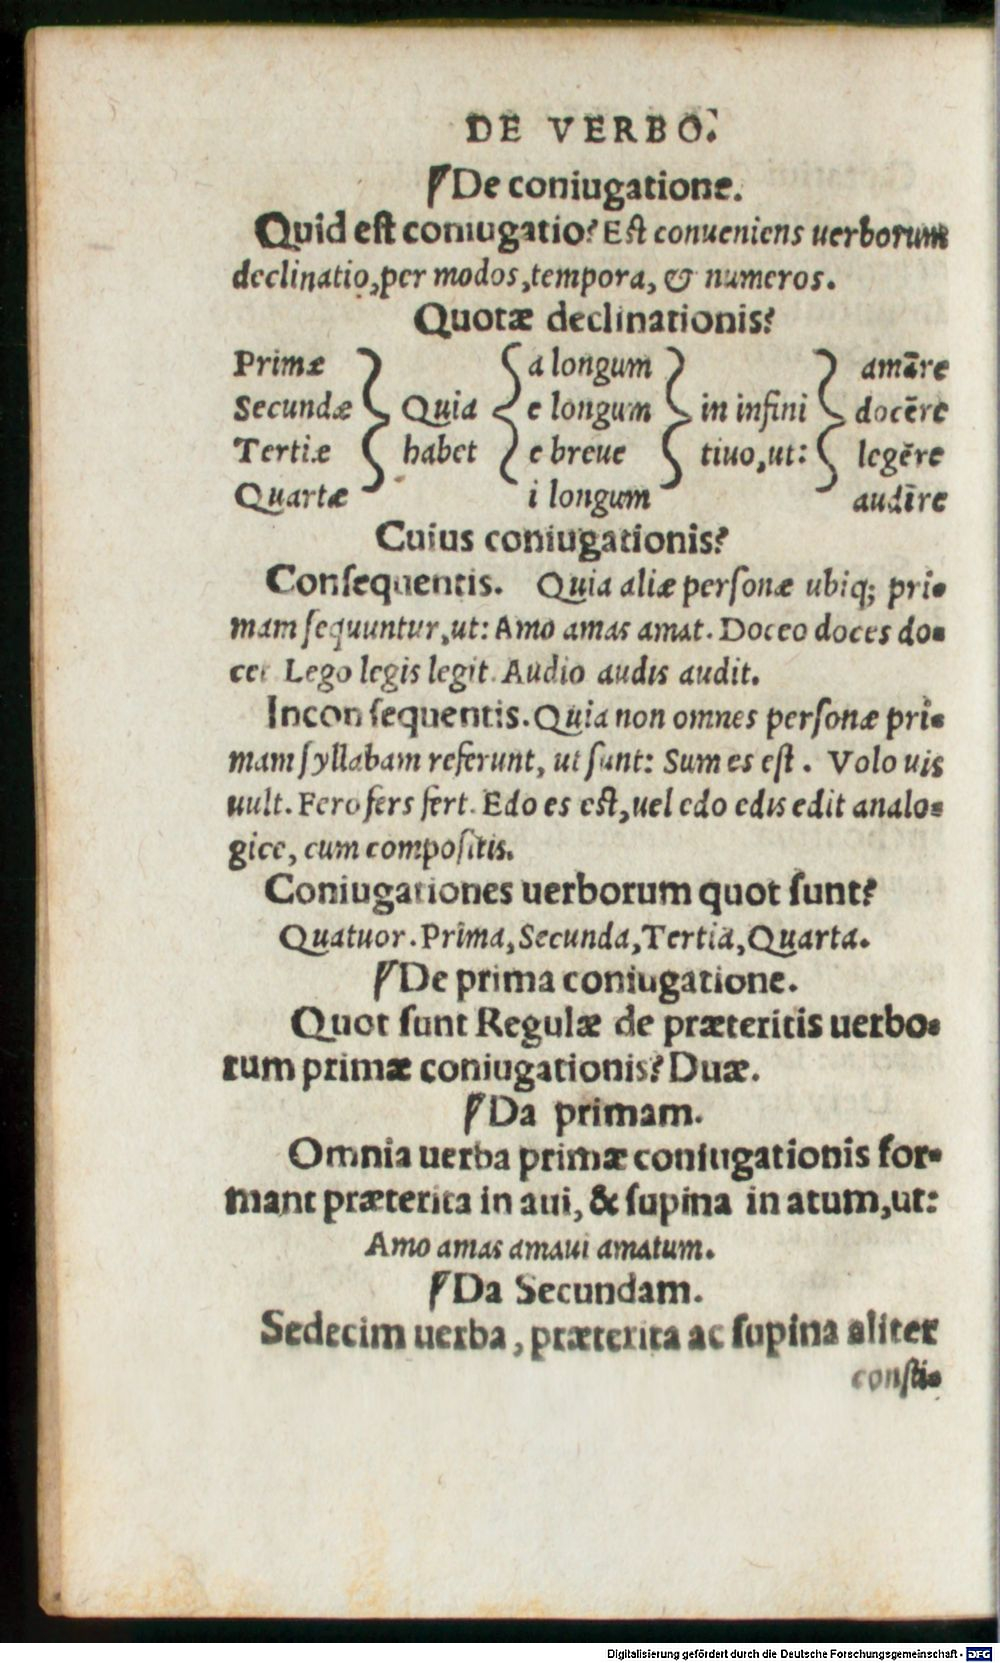 DE VERBO.
¶De coniugatione.
Quid est coniugatio? Est conueniens uerborum
declinatio, per modos, tempora, & numeros.
Quotæ declinationis?
Primæ a longum amāre
Secundæ Quia e longum in infini docēre
Tertiæ habet e breue tiuo, ut: legĕre
Quartæ i longum audīre
Cuius coniugationis?
Consequentis. Quia aliæ personæ ubiq; pri-
mam sequuntur, ut: Amo amas amat. Doceo doces do-
cet Lego legis legit. Audio audis audit.
Inconsequentis. Quia non omnes personæ pri-
mam syllabam referunt, ut sunt: Sum es est. Volo uis
uult. Fero fers fert. Edo es est, uel edo edis edit analo-
gice, cum compositis.
Coniugationes uerborum quot sunt?
Quatuor. Prima, Secunda, Tertia, Quarta.
¶De prima coniugatione.
Quot sunt Regulæ de præteritis uerbo-
rum primæ coniugationis? Duæ.
¶Da primam.
Omnia uerba primæ coniugationis for-
mant præterita in aui, & supina in atum, ut:
Amo amas amaui amatum.
¶Da Secundam.
Sedecim uerba, præterita ac supina aliter
consti-
Digitalisierung gefördert durch die Deutsche Forschungsgemeinschaft - DFG